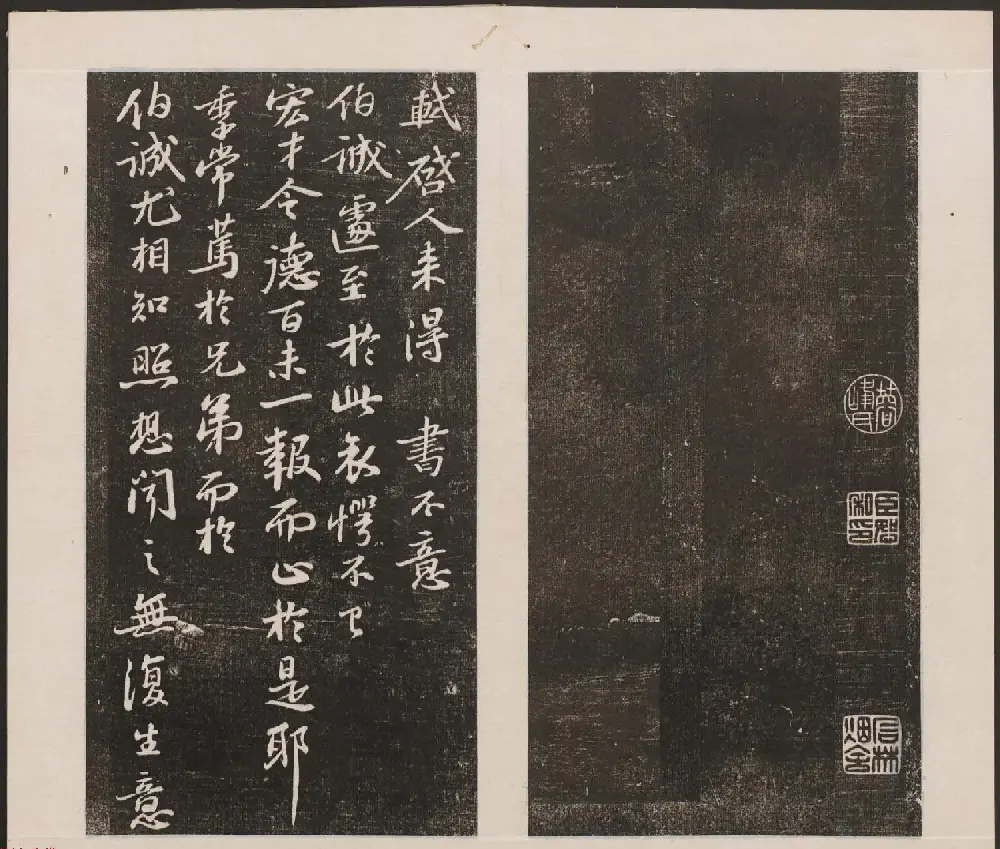 軾啓人來得 書不意
伯誠遽至於此哀愕不已
宏才令德百未一報而止於是耶
季常篤於兄弟而於
伯誠尤相知照想聞之無復生意